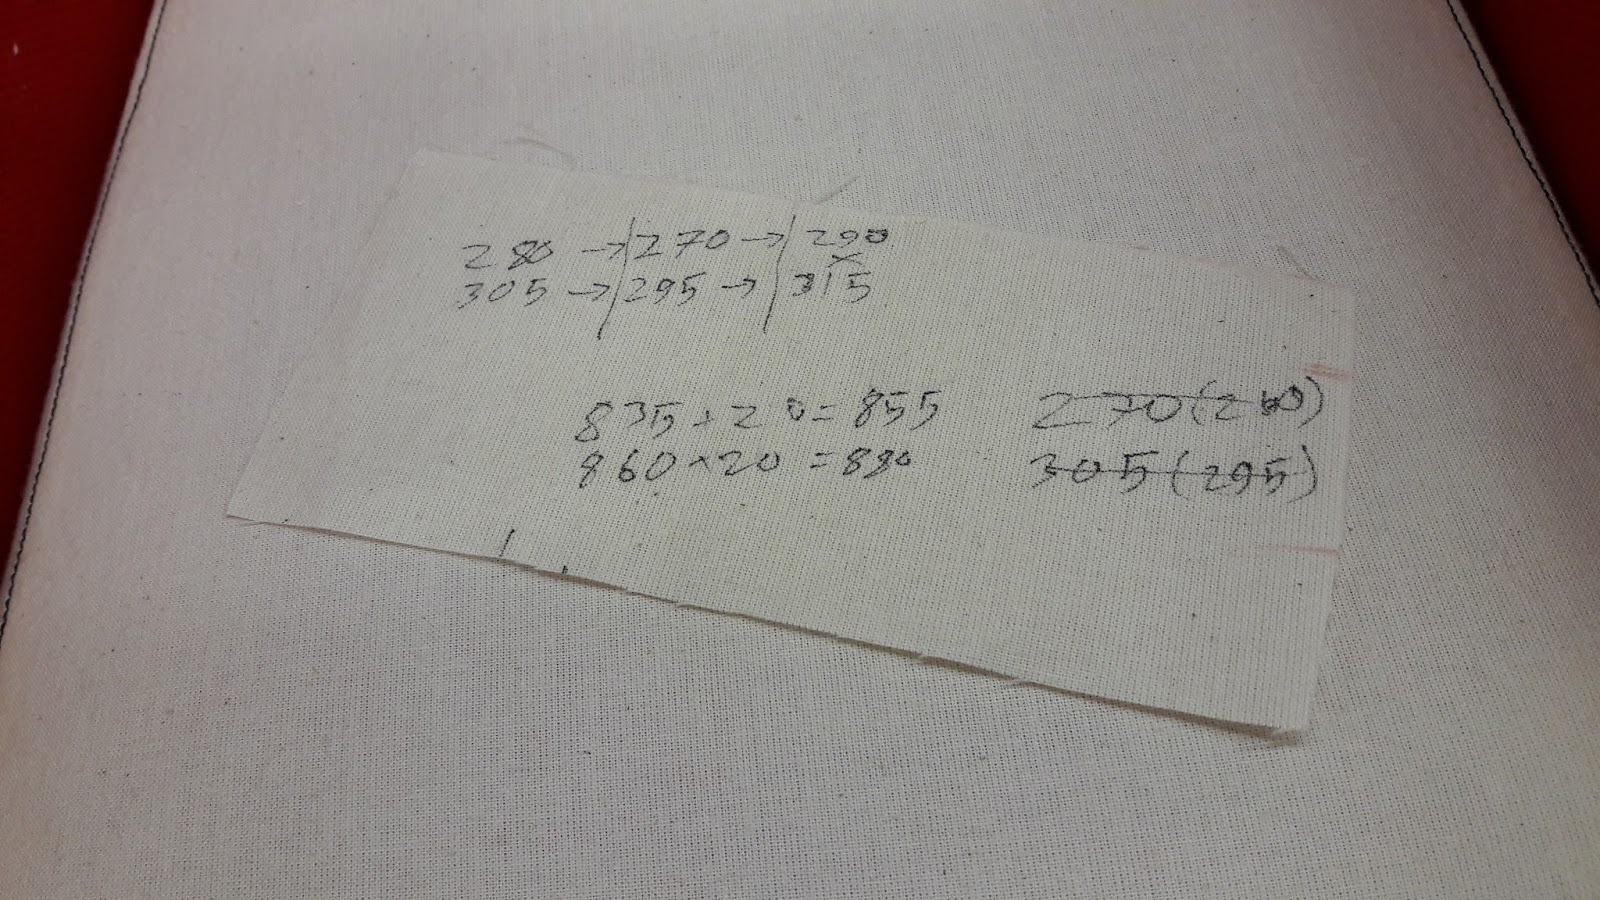 280 →|270→|290
305 →|295 →|315
835+20=855
860+20=880
270(260)
305(295)